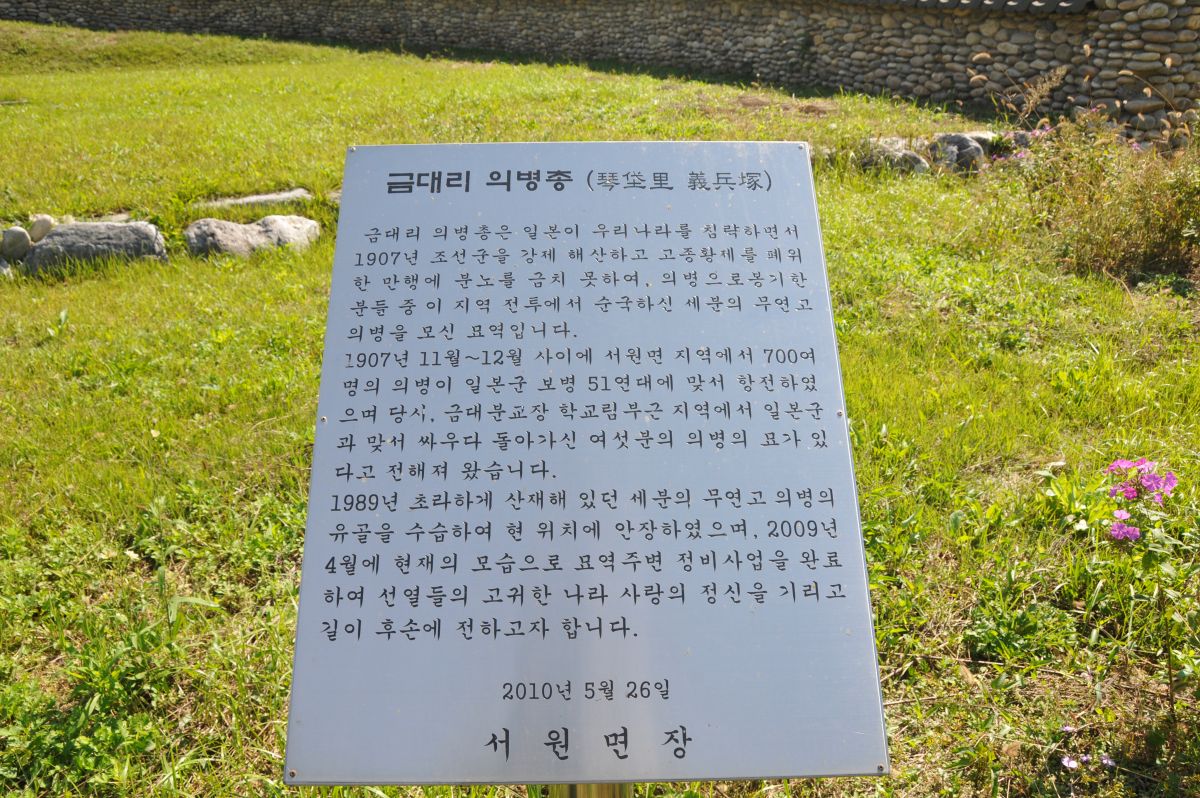 금대리 의병총 (琴垈里 義兵塚)
금대리 의병총은 일본이 우리나라를 침략하면서
1907년 조선군을 강제 해산하고 고종황제를 폐위
한 만행에 분노를 금치 못하여, 의병으로봉기한
분들 중 이 지역 전투에서 순국하신 세분의 무연고
의병을 모신 묘역입니다.
1907년 11월~12월 사이에 서원면 지역에서 700여
명의 의병이 일본군 보병 51연대에 맞서 항전하였
으며 당시, 금대분교장 학교림부근 지역에서 일본군
과 맞서 싸우다 돌아가신 여섯분의 의병의 묘가 있
다고 전해져 왔습니다.
1989년 초라하게 산재해 있던 세분의 무연고 의병의
유골을 수습하여 현 위치에 안장하였으며, 2009년
4월에 현재의 모습으로 묘역주변 정비사업을 완료
하여 선열들의 고귀한 나라 사랑의 정신을 기리고
길이 후손에 전하고자 합니다.
2010년 5월 26일
서 원 면 장